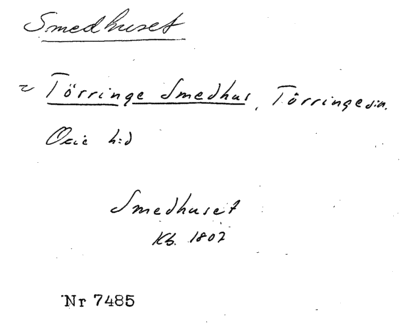 Smedhuset
= Törringe Smedhus, Törringe sn.
Oxie hd
Smedhuset
Kb. 1802
Nr 7485